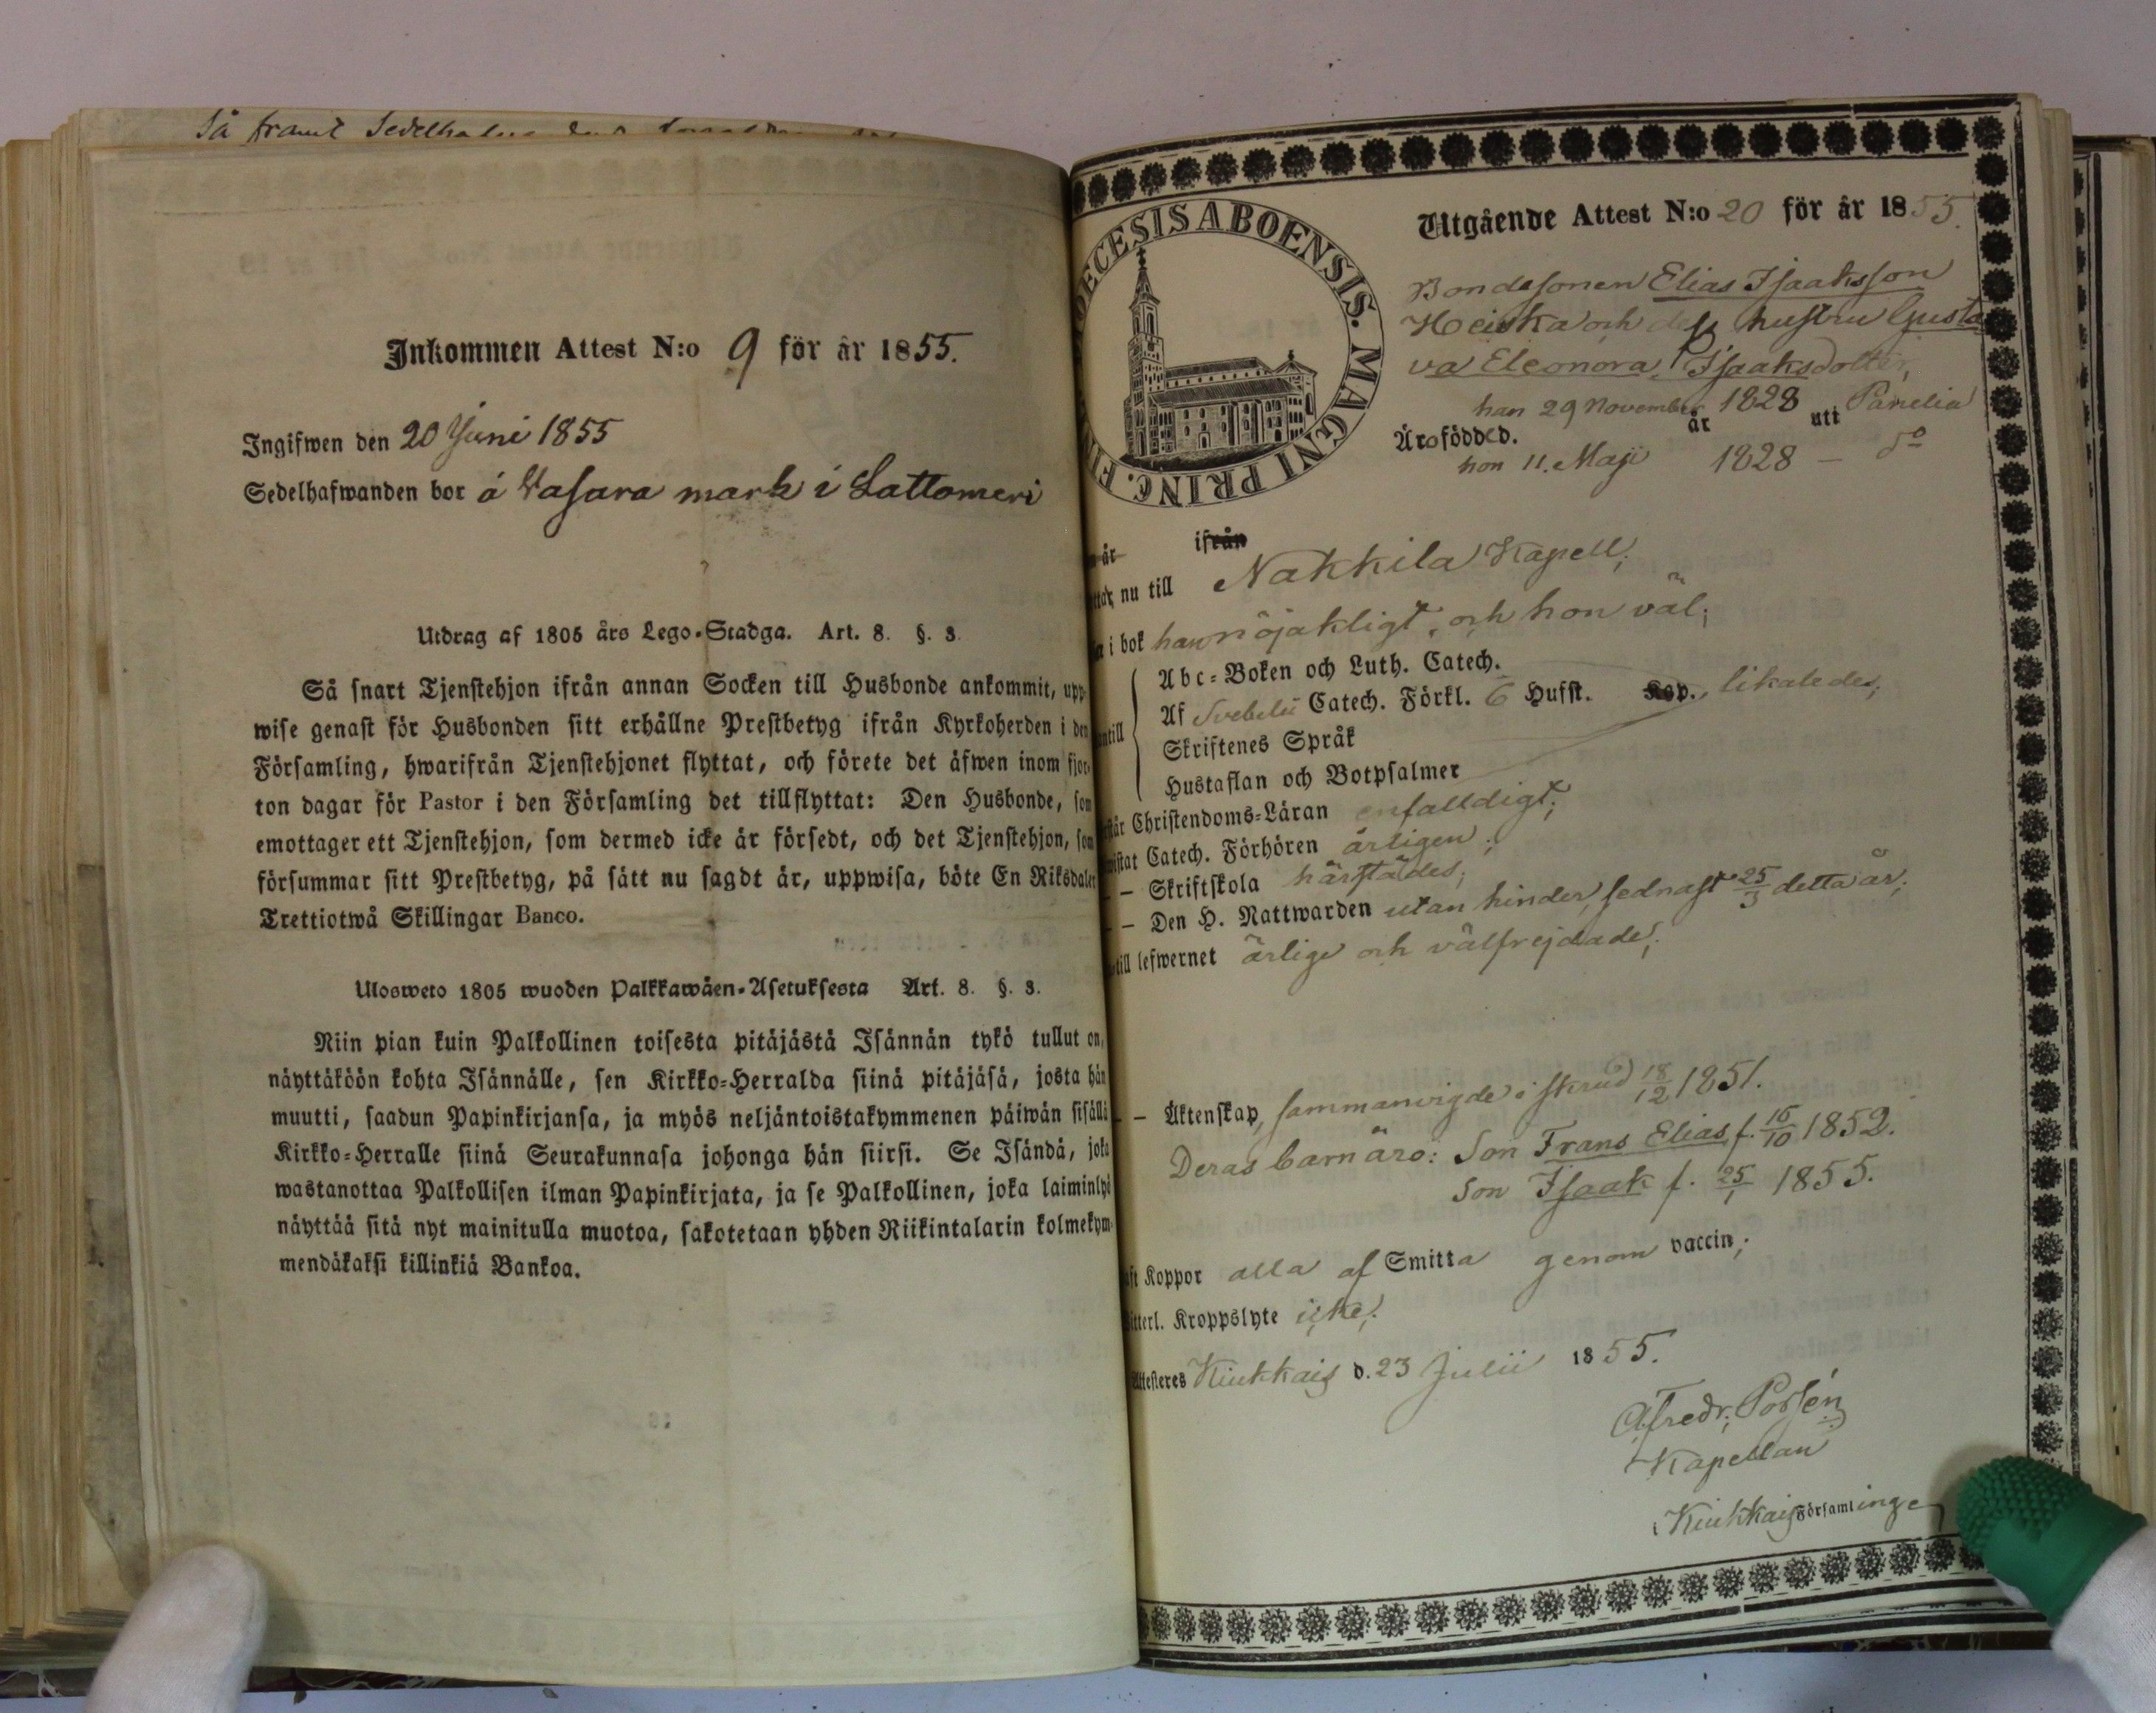 Så framt
Inkommen Attest N:o 9 för år 1855.
Ingifwen den 20 Juni 1855
Sedelhafwanden bor å Wasara mark i Lattomeri
Utdrag af 1805 års Lego-Stadga. Art. 8. §. 3.
Så snart Tjenstehjon ifrån annan Socken till Husbonde ankommit, upp-
wise genast för Husbonden sitt erhållne Prestbetyg ifrån Kyrkoherden i den
Församling, hwarifrån Tjenstehjonet flyttat, och förete det äfwen inom fjor-
ton dagar för Pastor i den Församling det tillflyttat: Den Husbonde, som
emottager ett Tjenstehjon, som dermed icke är försedt, och det Tjenstehjon, som
försummar sitt Prestbetyg, på sätt nu sagdt är, uppwisa, böte En Riksdaler
Trettiotwå Skillingar Banco.
Ulosweto 1805 wuoden Palkkawäen-Asetuksesta Art. 8. §. 3.
Niin pian kuin Palkollinen toisesta pitäjästä Isännän tykö tullut on,
näyttäköön kohta Isännälle, sen Kirkko-Herralda siinä pitäjäsä, josta hän
muutti, saadun Papinkirjansa, ja myös neljäntoistakymmenen päiwän sisällä
Kirkko-Herralle siinä Seurakunnasa johonga hän siirsi. Se Isändä, joka
wastanottaa Palkollisen ilman Papinkirjata, ja se Palkollinen, joka laiminlyö
näyttää sitä nyt mainitulla muotoa, sakotetaan yhden Riikintalarin kolmekym-
mendäkaksi killinkiä Bankoa.
DECESIS ABOENSIS. MAGNI PRINC. FIN
Utgående Attest N:o 20 för år 1855.
Bondesonen Elias Isaaksson
Heiska och dess hustru Gusta
va Eleonora Isaaksdotter,
han 29 November 1828 Panelia
Äro födded. år uti
hon 11. Maji 1828 — do
är ifrån
nu till Nakkila Kapell;
i bok han nöjakligt, och hon väl;
Abc-Boken och Luth. Catech.
Af Svebelii Catech. Förkl. 6 Hufst. Kap., likaledes;
Skriftenes Språk
Hustaflan och Botpsalmer
Christendoms-Läran enfalldigt;
Catech. Förhören årligen;
— Skriftskola härstädes;
— Den H. Nattwarden utan hinder, sednast 25/3 detta år;
till lefwernet ärlige och välfrejdade;
— Äktenskap, sammanvigde i skrud 18/12 1851.
Deras barn äro: Son Frans Elias f. 16/10 1852.
Son Isaak f. 25/1 1855.
Koppor alla af Smitta genom vaccin;
Kroppslyte icke;
Attesteres Kiukkais d. 23 Julii 1855.
Kapellan
i Kiukkais Församlinge